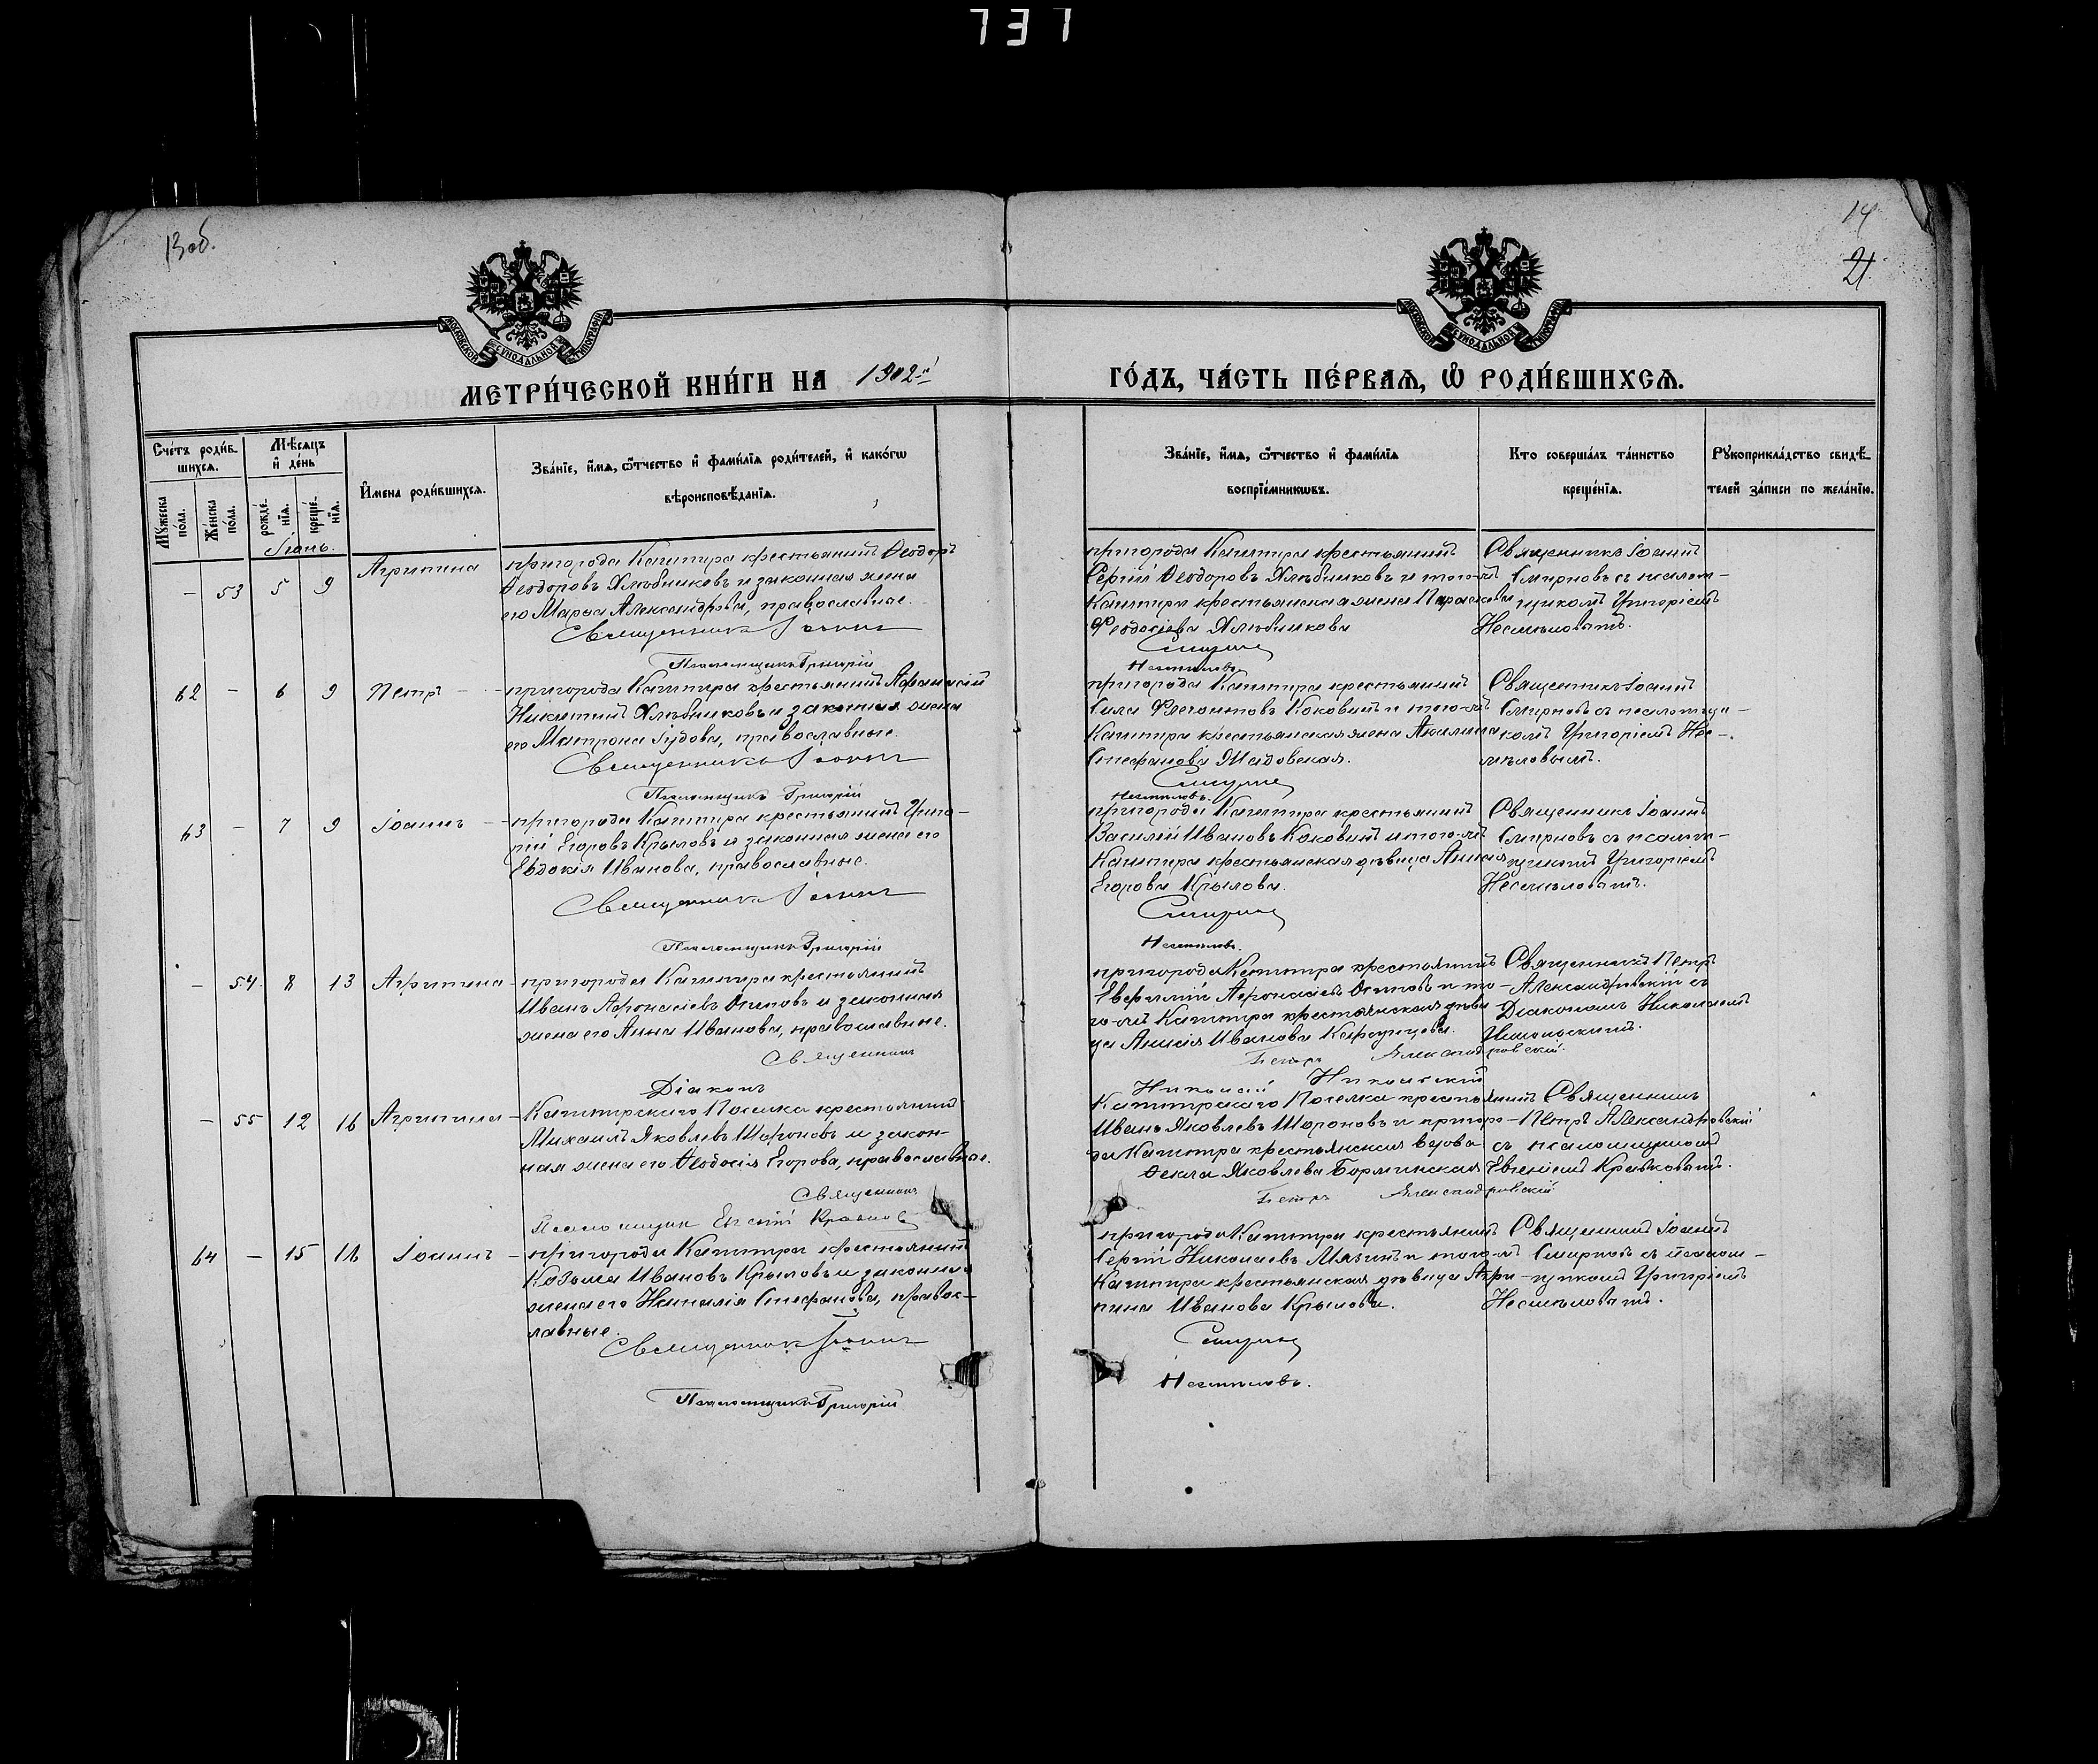 737
13 об.
14
21
МОСКОВСКОЙ СѴНОДАЛЬНОЙ ТИПОГРАФІИ
МОСКОВСКОЙ СѴНОДАЛЬНОЙ ТИПОГРАФІИ
МЕТРИ́ЧЕСКОЙ КНИ́ГИ НА 1902й
ГО́ДЪ, ЧА́СТЬ ПЕ́РВАѦ, Ѽ РОДИ́ВШИХСѦ.
Сче́тъ роди́в-
шихсѧ.
Мѣ́сѧцъ
и҆ де́нь
Мꙋ́жеска
по́ла.
Же́нска
по́ла.
рожде́-
нїѧ.
креще́-
нїѧ.
И҆мена роди́вшихсѧ.
Зва́нїе, и҆́мѧ, ѻ҆́тчество и҆ фами́лїѧ роди́телей, и҆ како́гѡ
вѣроисповѣ́данїѧ.
Зва́нїе, и҆́мѧ, ѻ҆́тчество и҆ фами́лїѧ
воспрїе́мникѡвъ.
Кто соверша́лъ та́инство
креще́нїѧ.
Рꙋкоприкла́дство свидѣ́-
телей за́писи по жела́нїю.
Іюнь.
- 53 5 9 Агрипина
пригорода Каштира крестьянинъ Ѳеодоръ
Ѳеодоровъ Хлѣбниковъ и законная жена
его Марѳа Александрова, православные.
Священникъ Іоаннъ
Псаломщикъ Григорій
пригорода Каштира крестьянинъ
Сергій Ѳеодоровъ Хлѣбниковъ и того-же
Каштира крестьянская жена Параскева
Феодосіева Хлѣбникова
Смирнов
Несмѣловъ
Священникъ Іоаннъ
Смирновъ съ псалом-
щикомъ Григоріемъ
Несмѣловымъ.
62 - 6 9 Петръ
пригорода Каштира крестьянинъ Афанасій
Никитинъ Хлѣбниковъ и законная жена
его Матрона Іудова, православные.
Священникъ Іоаннъ
Псаломщикъ Григорій
пригорода Каштира крестьянинъ
Сила Флегонтовъ Коковинъ и того-же
Каштира крестьянская жена Акилина
Стефанова Жадовская.
Смирнов
Несмѣловъ.
Священникъ Іоаннъ
Смирновъ съ псаломщи-
комъ Григоріемъ Нес-
мѣловымъ.
63 - 7 9 Іоаннъ
пригорода Каштира крестьянинъ Григо-
рій Егоровъ Крыловъ и законная жена его
Евдокія Иванова, православные.
Священникъ Іоаннъ
Псаломщикъ Григорій
пригорода Каштира крестьянинъ
Василій Ивановъ Коковинъ и того-же
Каштира крестьянская дѣвица Анисія
Егорова Крылова.
Смирнов
Несмѣловъ.
Священникъ Іоаннъ
Смирновъ съ псалом-
щикомъ Григоріемъ
Несмѣловымъ.
- 54. 8 13 Агрипина
пригорода Каштира крестьянинъ
Иванъ Афонасіевъ Осиповъ и законная
жена его Анна Иванова, православные.
Священникъ
Діаконъ
пригорода Каштира крестьянинъ
Евфимій Афонасіевъ Осиповъ и то-
го-же Каштира крестьянская дѣви-
ца Анисія Иванова
Петръ Александровскій.
Николай Никольскій
Священникъ Петръ
Александровскій съ
Діакономъ Николаемъ
Никольскимъ.
- 55 12 16 Агрипина
Каштирскаго Поселка крестьянинъ
Михаилъ Яковлевъ Шароновъ и закон-
ная жена его Ѳеодосія Егорова, православные.
Священникъ
Псаломщикъ Евгеній Краснов
Каштирскаго Поселка крестьянинъ
Иванъ Яковлевъ Шароновъ и приго-
рода Каштира крестьянская вдова
Ѳекла Яковлева Борминская
Петръ Александровскій
Священникъ
Петръ Александровскій
съ псаломщикомъ
Евгеніемъ
64 - 15 16 Іоаннъ
пригорода Каштира крестьянинъ
Козьма Ивановъ Крыловъ и законная
жена его Наталія Стефанова, правос-
лавные.
Священникъ Іоаннъ
Псаломщикъ Григорій
пригорода Каштира крестьянинъ
Сергій Николаевъ Мязинъ и того-же
Каштира крестьянская дѣвица Агри-
пина Иванова Крылова.
Смирнов
Несмѣловъ.
Священникъ Іоаннъ
Смирновъ съ псалом-
щикомъ Григоріемъ
Несмѣловымъ.